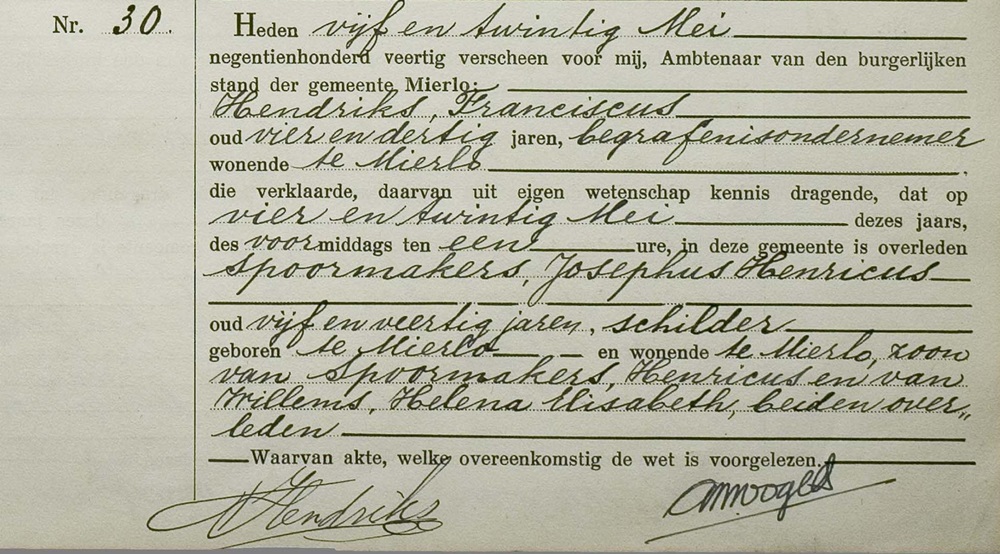 Nr. 30.
Heden vijf en twintig Mei
negentienhonderd veertig verscheen voor mij, Ambtenaar van den burgerlijken
stand der gemeente Mierlo:
Hendriks, Franciscus
oud vier en dertig jaren, begrafenisondernemer
wonende te Mierlo
die verklaarde, daarvan uit eigen wetenschap kennis dragende, dat op
vier en twintig Mei dezes jaars,
des voormiddags ten een ure, in deze gemeente is overleden
Spoormakers, Josephus Henricus
oud vijf en veertig jaren, schilder
geboren te Mierlo en wonende te Mierlo, zoon
van Spoormakers, Henricus en van
Willems, Helena Elisabeth, beiden over„
leden
Waarvan akte, welke overeenkomstig de wet is voorgelezen.
Hendriks